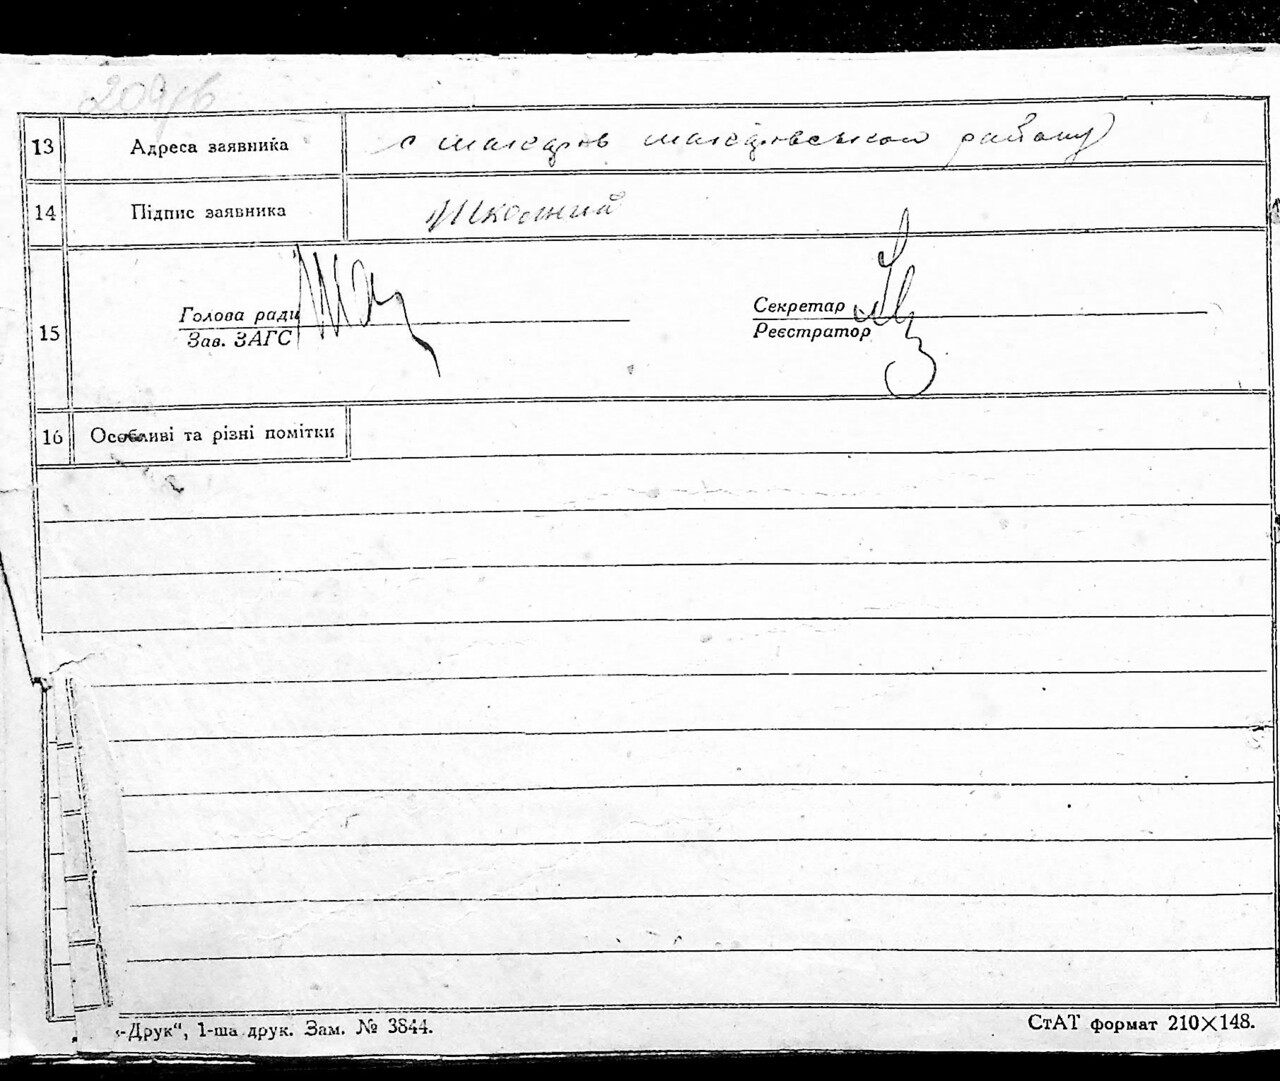 209/6
13 Адреса заявника с Макарів Макарівського району
14 Підпис заявника Школьний
15 Голова ради Секретар
Зав. ЗАГС Реєстратор
16 Особливі та різні помітки
-Друк“, 1-ша друк. Зам. № 3844.
СтАТ формат 210×148.